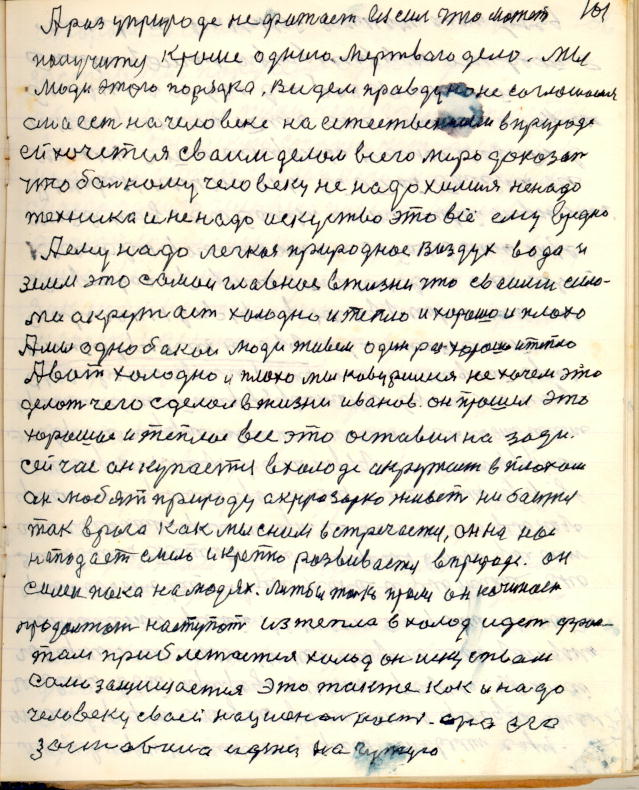 101
А раз у природе не фатает их сил что может
получитя Кроме одного Мертвого дело. Мы
люди этого порядка. Видем правду но не соглошаимся
она ест на человеке на естественном в природе
ей хочется своим делом всего миро доказат
что болному человеку не надо химия ненадо
техника и не надо искуство это всё ему Вредно
А ему надо легкоя природное Воздух вода и
земля это самои главное в жизни что своими сило-
ми акружает холодно и тепло и хорошо и плохо
А мы однобакои люди живем один раз хорошо и тепло
А вот холодно и плохо мы не хочем это
делат чего сделол в жизни иванов. он прошел это
хорошое и теплое все это оставил на зади.
сейчас он купается в холоде акружает в плохом
он любят природу живет ни баится
так врага как мы с ним встречаемся, он на нас
нападает смело и крепко развиваетя в природе. он
силен пока на людях. он начинает
продолжат наступот из тепла в холод идет фрон-
том приближается холод он искуством
сам защищается Это также как и надо
человеку своей национальност. она его
заставила идти на чужую